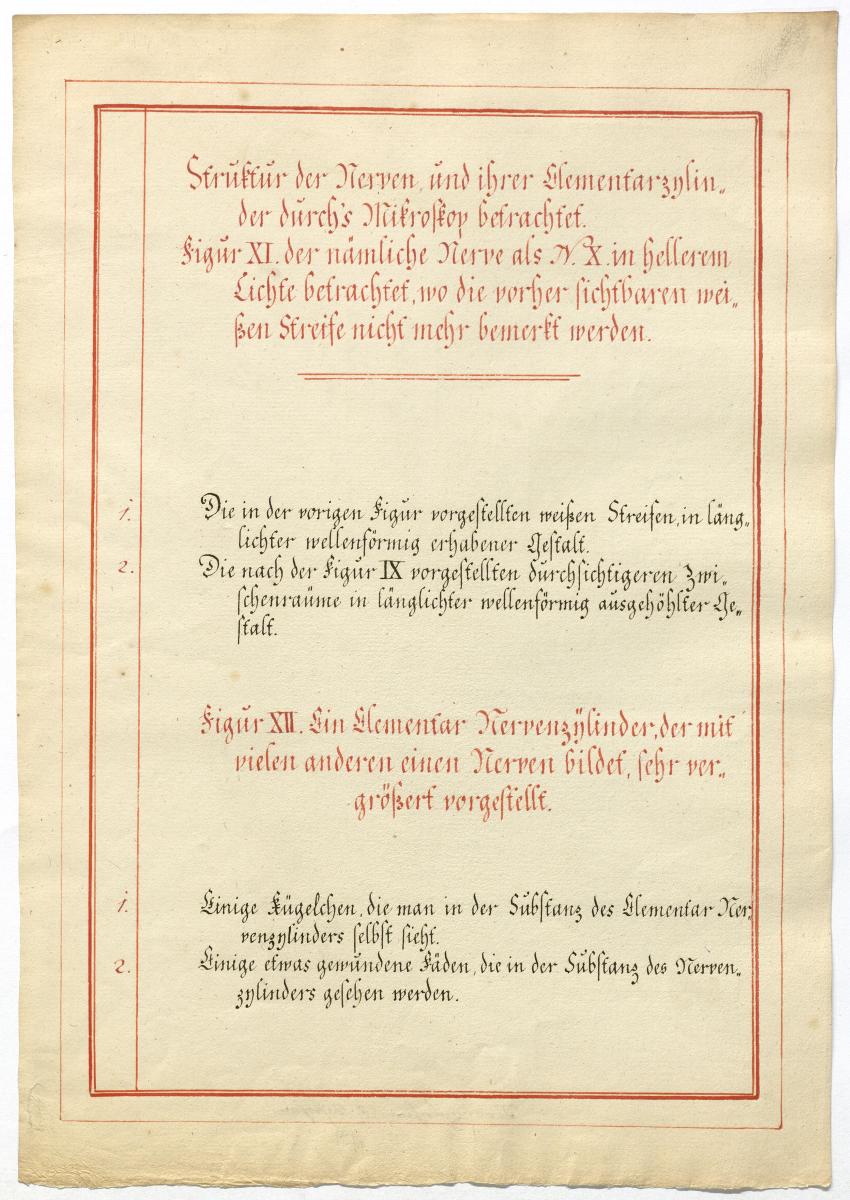 Struktur der Nerven, und ihrer Elementarzylin„
der durch's Mikroskop betrachtet.
Figur XI. der nämliche Nerve als N.º X. in hellerem
Lichte betrachtet, wo die vorher sichtbaren wei„
ßen Streife nicht mehr bemerkt werden.
1. Die in der vorigen Figur vorgestellten weißen Streifen, in läng„
lichter wellenförmig erhabener Gestalt.
2. Die nach der Figur IX vorgestellten durchsichtigeren Zwi„
schenraüme in länglichter wellenförmig ausgehöhlter Ge„
stalt.
Figur XII. Ein Elementar Nervenzÿlinder, der mit
vielen anderen einen Nerven bildet, sehr ver„
größert vorgestellt.
1. Einige Kügelchen, die man in der Substanz des Elementar Ner„
venzylinders selbst sieht.
2. Einige etwas gewundene Fäden, die in der Substanz des Nerven„
zylinders gesehen werden.